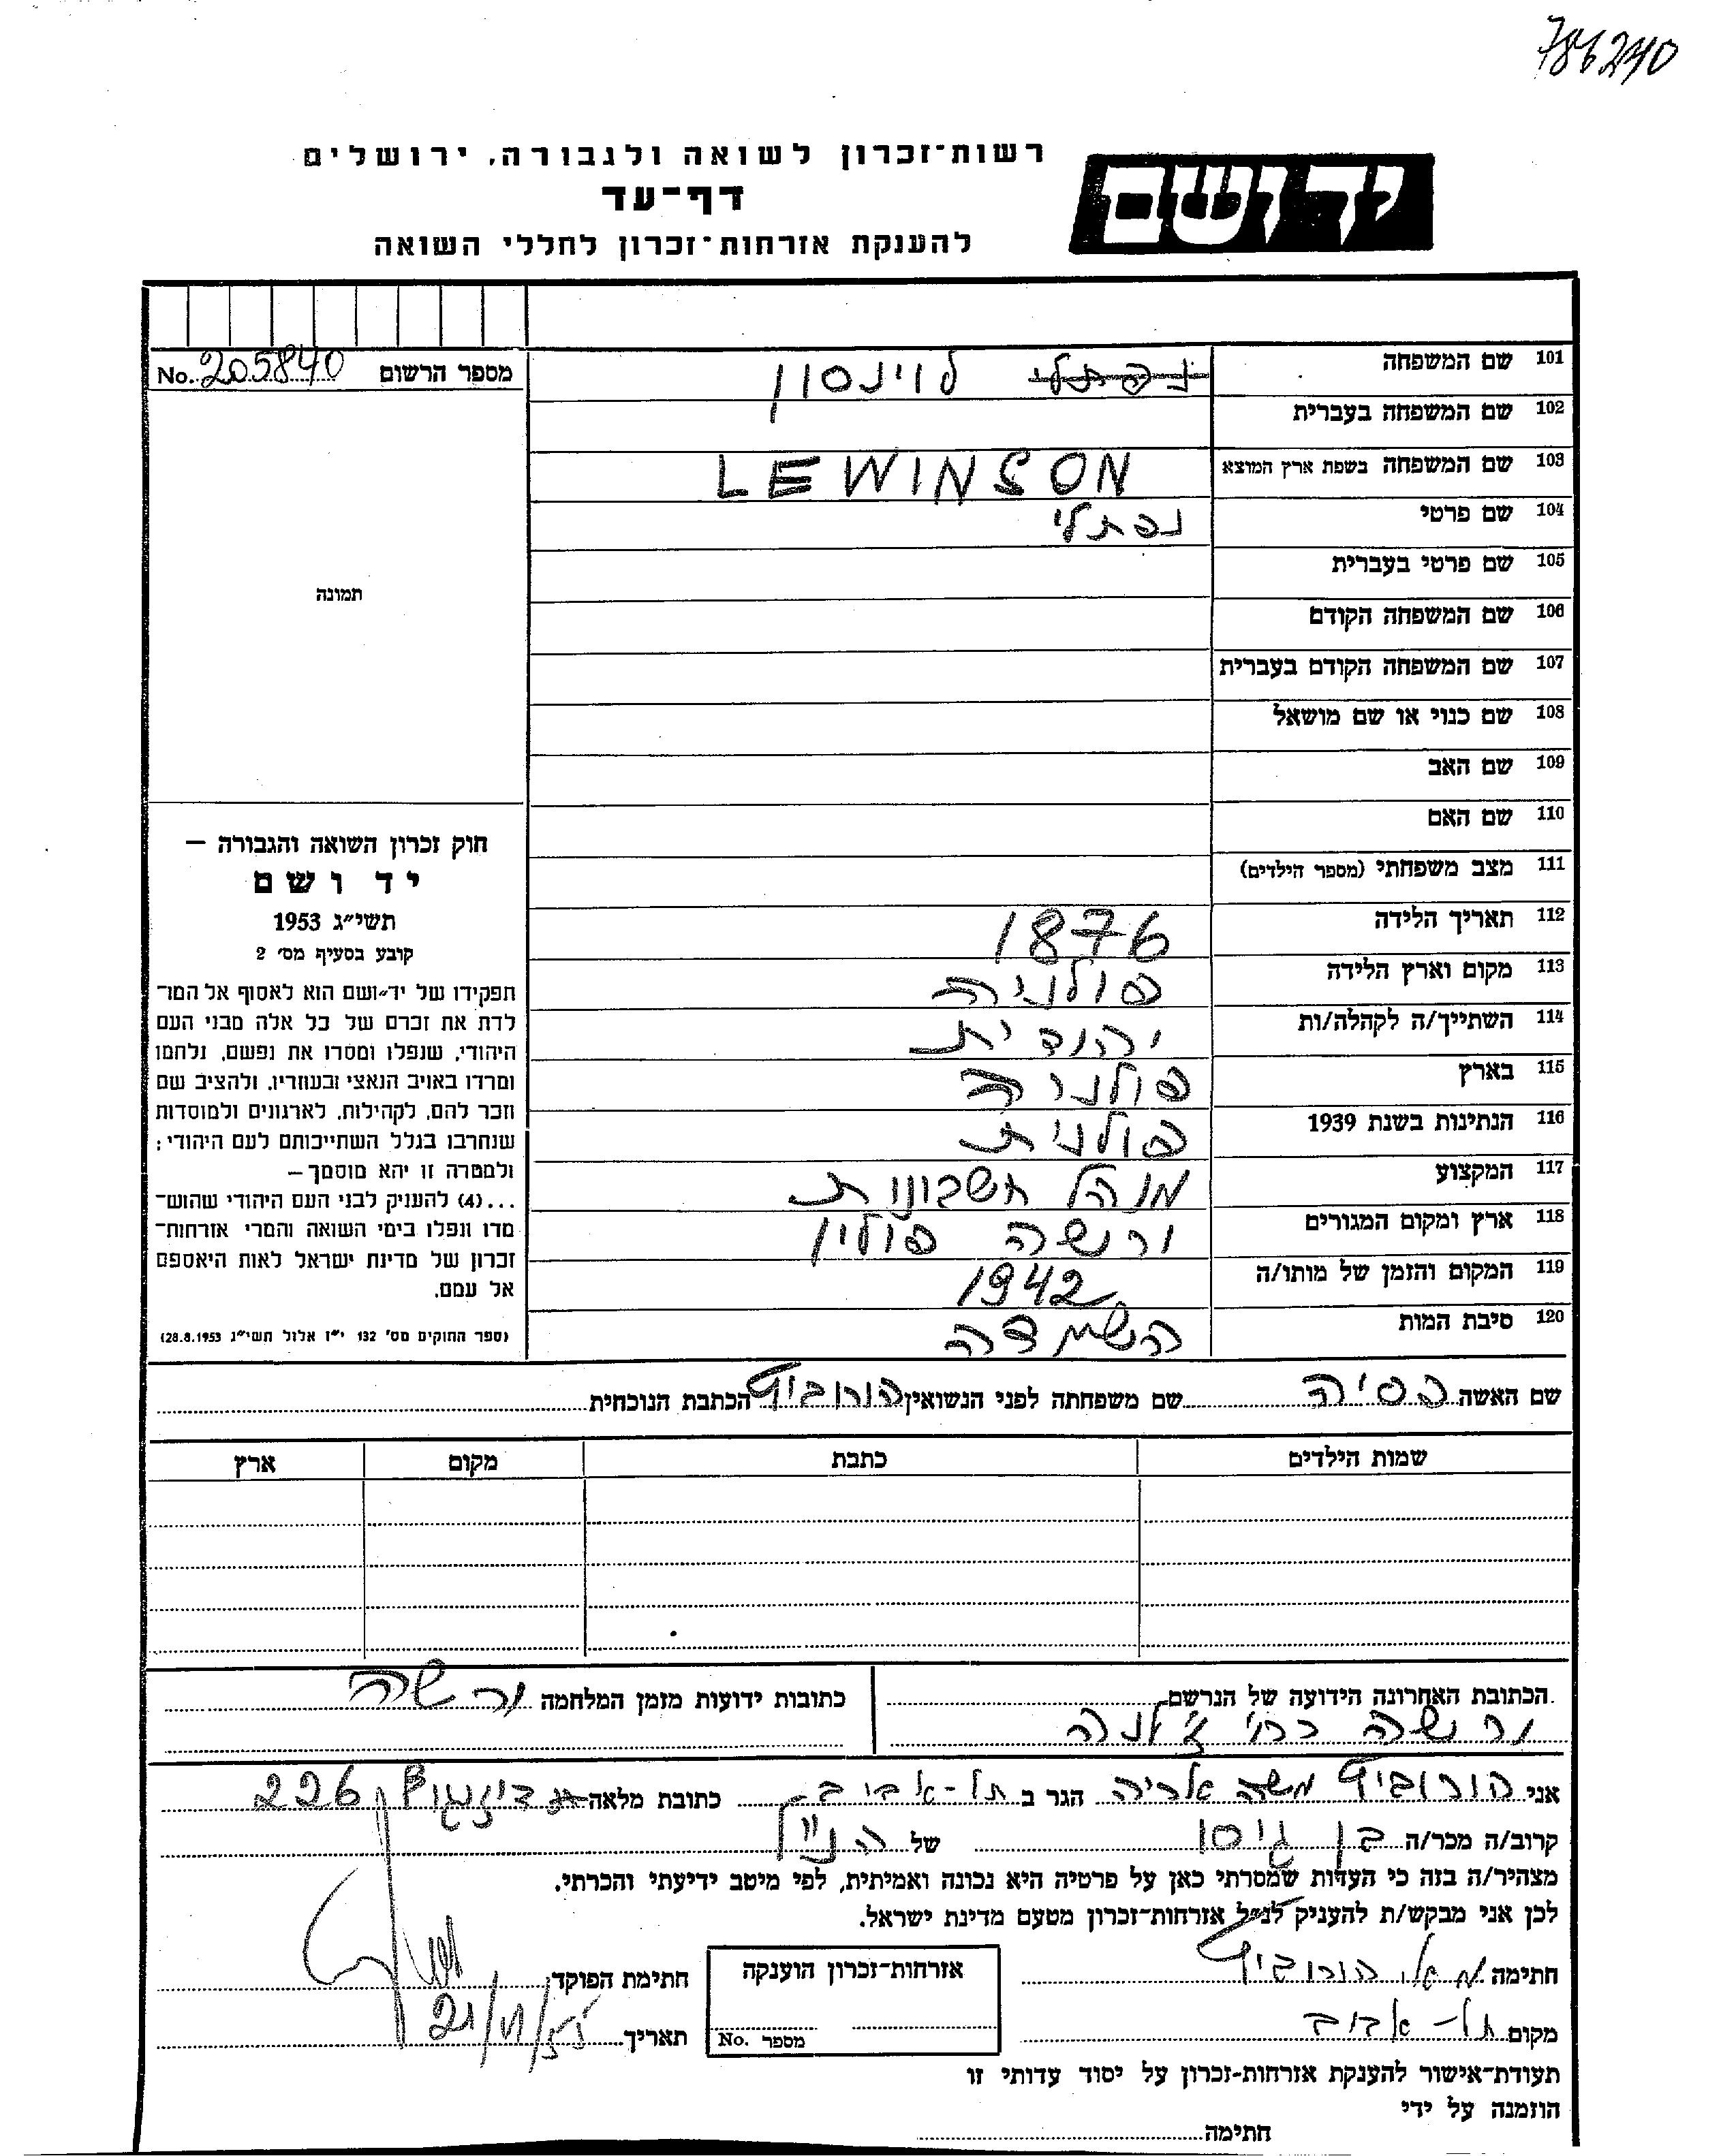 786240
רשות־זכרון לשואה ולגבורה, ירושלים
דף־עד
להענקת אזרחות־זכרון לחללי השואה
יד ושם
101 שם המשפחה נפתלי לוינסון
מספר הרשום No. 205840
102 שם המשפחה בעברית
103 שם המשפחה בשפת ארץ המוצא LEWINSON
104 שם פרטי נפתלי
105 שם פרטי בעברית
106 שם המשפחה הקודם
107 שם המשפחה הקודם בעברית
108 שם כנוי או שם מושאל
109 שם האב
110 שם האם
111 מצב משפחתי (מספר הילדים)
112 תאריך הלידה 1876
113 מקום וארץ הלידה פולניה
114 השתייך/ה לקהלה/ות יהודית
115 בארץ פולניה
116 הנתינות בשנת 1939 פולנית
117 המקצוע מנהל חשבונות
118 ארץ ומקום המגורים ורשה פולין
119 המקום והזמן של מותו/ה 1942
120 סיבת המות השמדה
תמונה
חוק זכרון השואה והגבורה –
יד ושם
תשי״ג 1953
קובע בסעיף מס׳ 2
תפקידו של יד־ושם הוא לאסוף אל המו־
לדת את זכרם של כל אלה מבני העם
היהודי, שנפלו ומסרו את נפשם, נלחמו
ומרדו באויב הנאצי ובעוזריו, ולהציב שם
וזכר להם, לקהילות, לארגונים ולמוסדות
שנחרבו בגלל השתייכותם לעם היהודי;
ולמטרה זו יהא מוסמך –
...(4) להעניק לבני העם היהודי שהוש־
מדו ונפלו בימי השואה והמרי אזרחות־
זכרון של מדינת ישראל לאות היאספם
אל עמם.
(ספר החוקים מס׳ 132 י״ז אלול תשי״ג 28.8.1953)
שם האשה פסיה שם משפחתה לפני הנשואין הורוביץ הכתבת הנוכחית
שמות הילדים כתבת מקום ארץ
הכתובת האחרונה הידועה של הנרשם
ורשה רח׳ ז׳לנה
כתובות ידועות מזמן המלחמה ורשה
אני הורוביץ משה אריה הגר ב תל-אביב כתובת מלאה דיזנגוף 226
קרוב/ה מכר/ה בן גיסו של הנ״ל
מצהיר/ה בזה כי העדות שמסרתי כאן על פרטיה היא נכונה ואמיתית, לפי מיטב ידיעתי והכרתי.
לכן אני מבקש/ת להעניק לנ״ל אזרחות־זכרון מטעם מדינת ישראל.
חתימה מ.א. הורוביץ
אזרחות־זכרון הוענקה
מספר No.
חתימת הפוקד
מקום תל-אביב
תאריך 21/VI/55
תעודת־אישור להענקת אזרחות-זכרון על יסוד עדותי זו
הוזמנה על ידי
חתימה